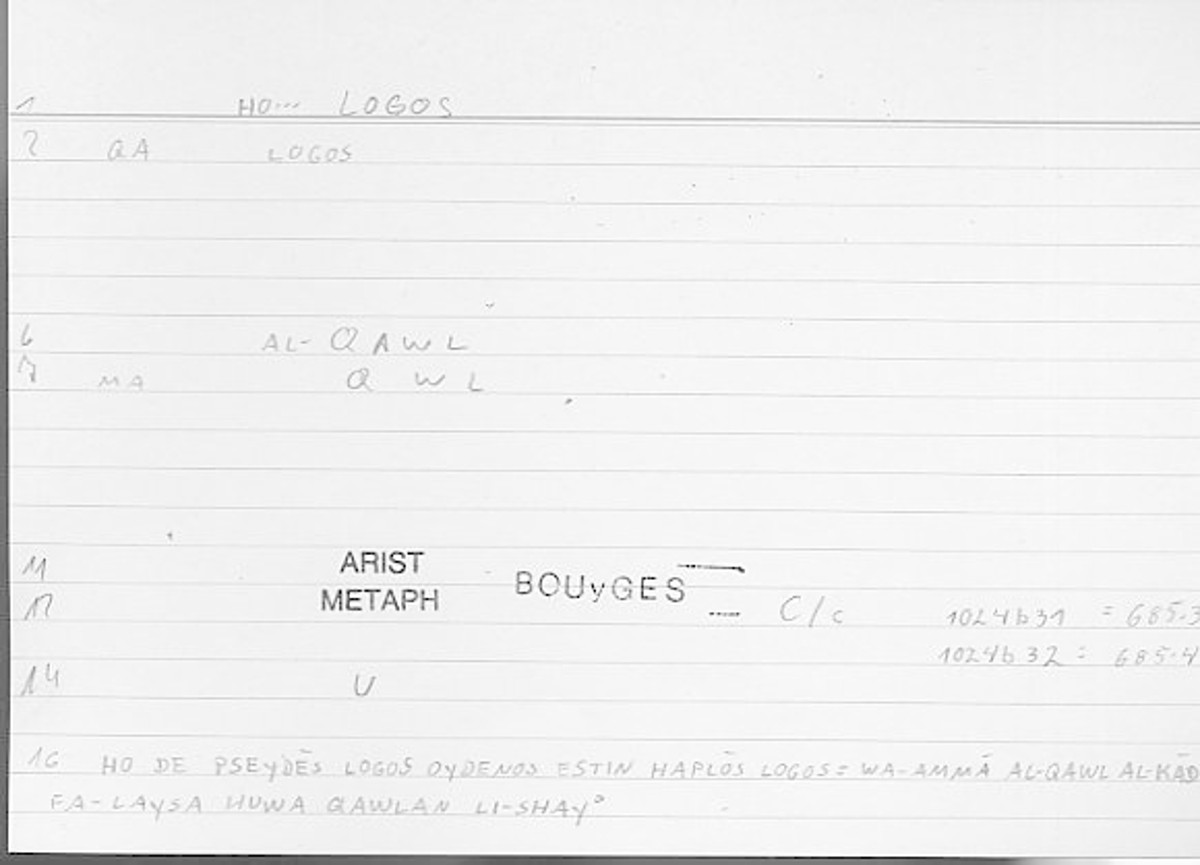 1 HO... LOGOS
2 QA LOGOS
6 AL-QAWL
7 MA Q W L
11 ARIST BOUyGES
12 METAPH C/c 1024b31 = 685.3
1024b32 = 685.4
14 U
16 HO DE PSEyDĒS LOGOS OyDENOS ESTIN HAPLŌS LOGOS = WA-AMMĀ AL-QAWL AL-KĀD
FA-LAySA HUWA QAWLAN LI-SHAy᾿